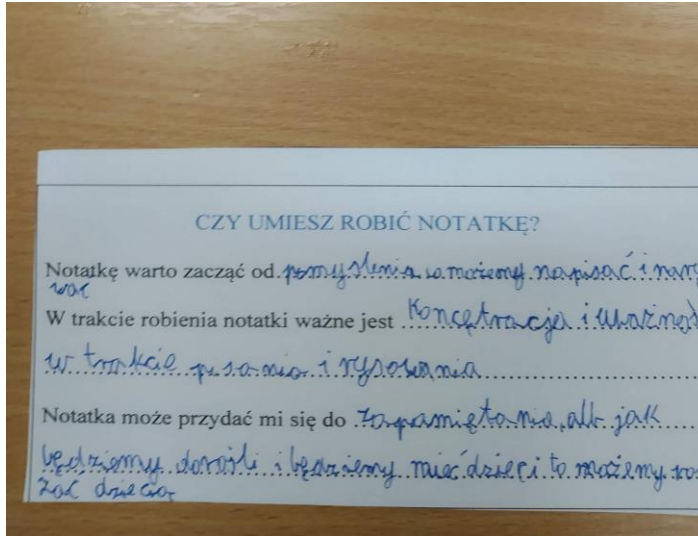 CZY UMIESZ ROBIĆ NOTATKĘ?
Notatkę warto zacząć od pomyślenia co możemy napisać i nary
wać
W trakcie robienia notatki ważne jest Koncętracja i uważnoś
w trakcie pisania i rysowania
Notatka może przydać mi się do zapamiętania, alb jak
będziemy dorośli i będziemy mieć dzieci to możemy
zać dziecią